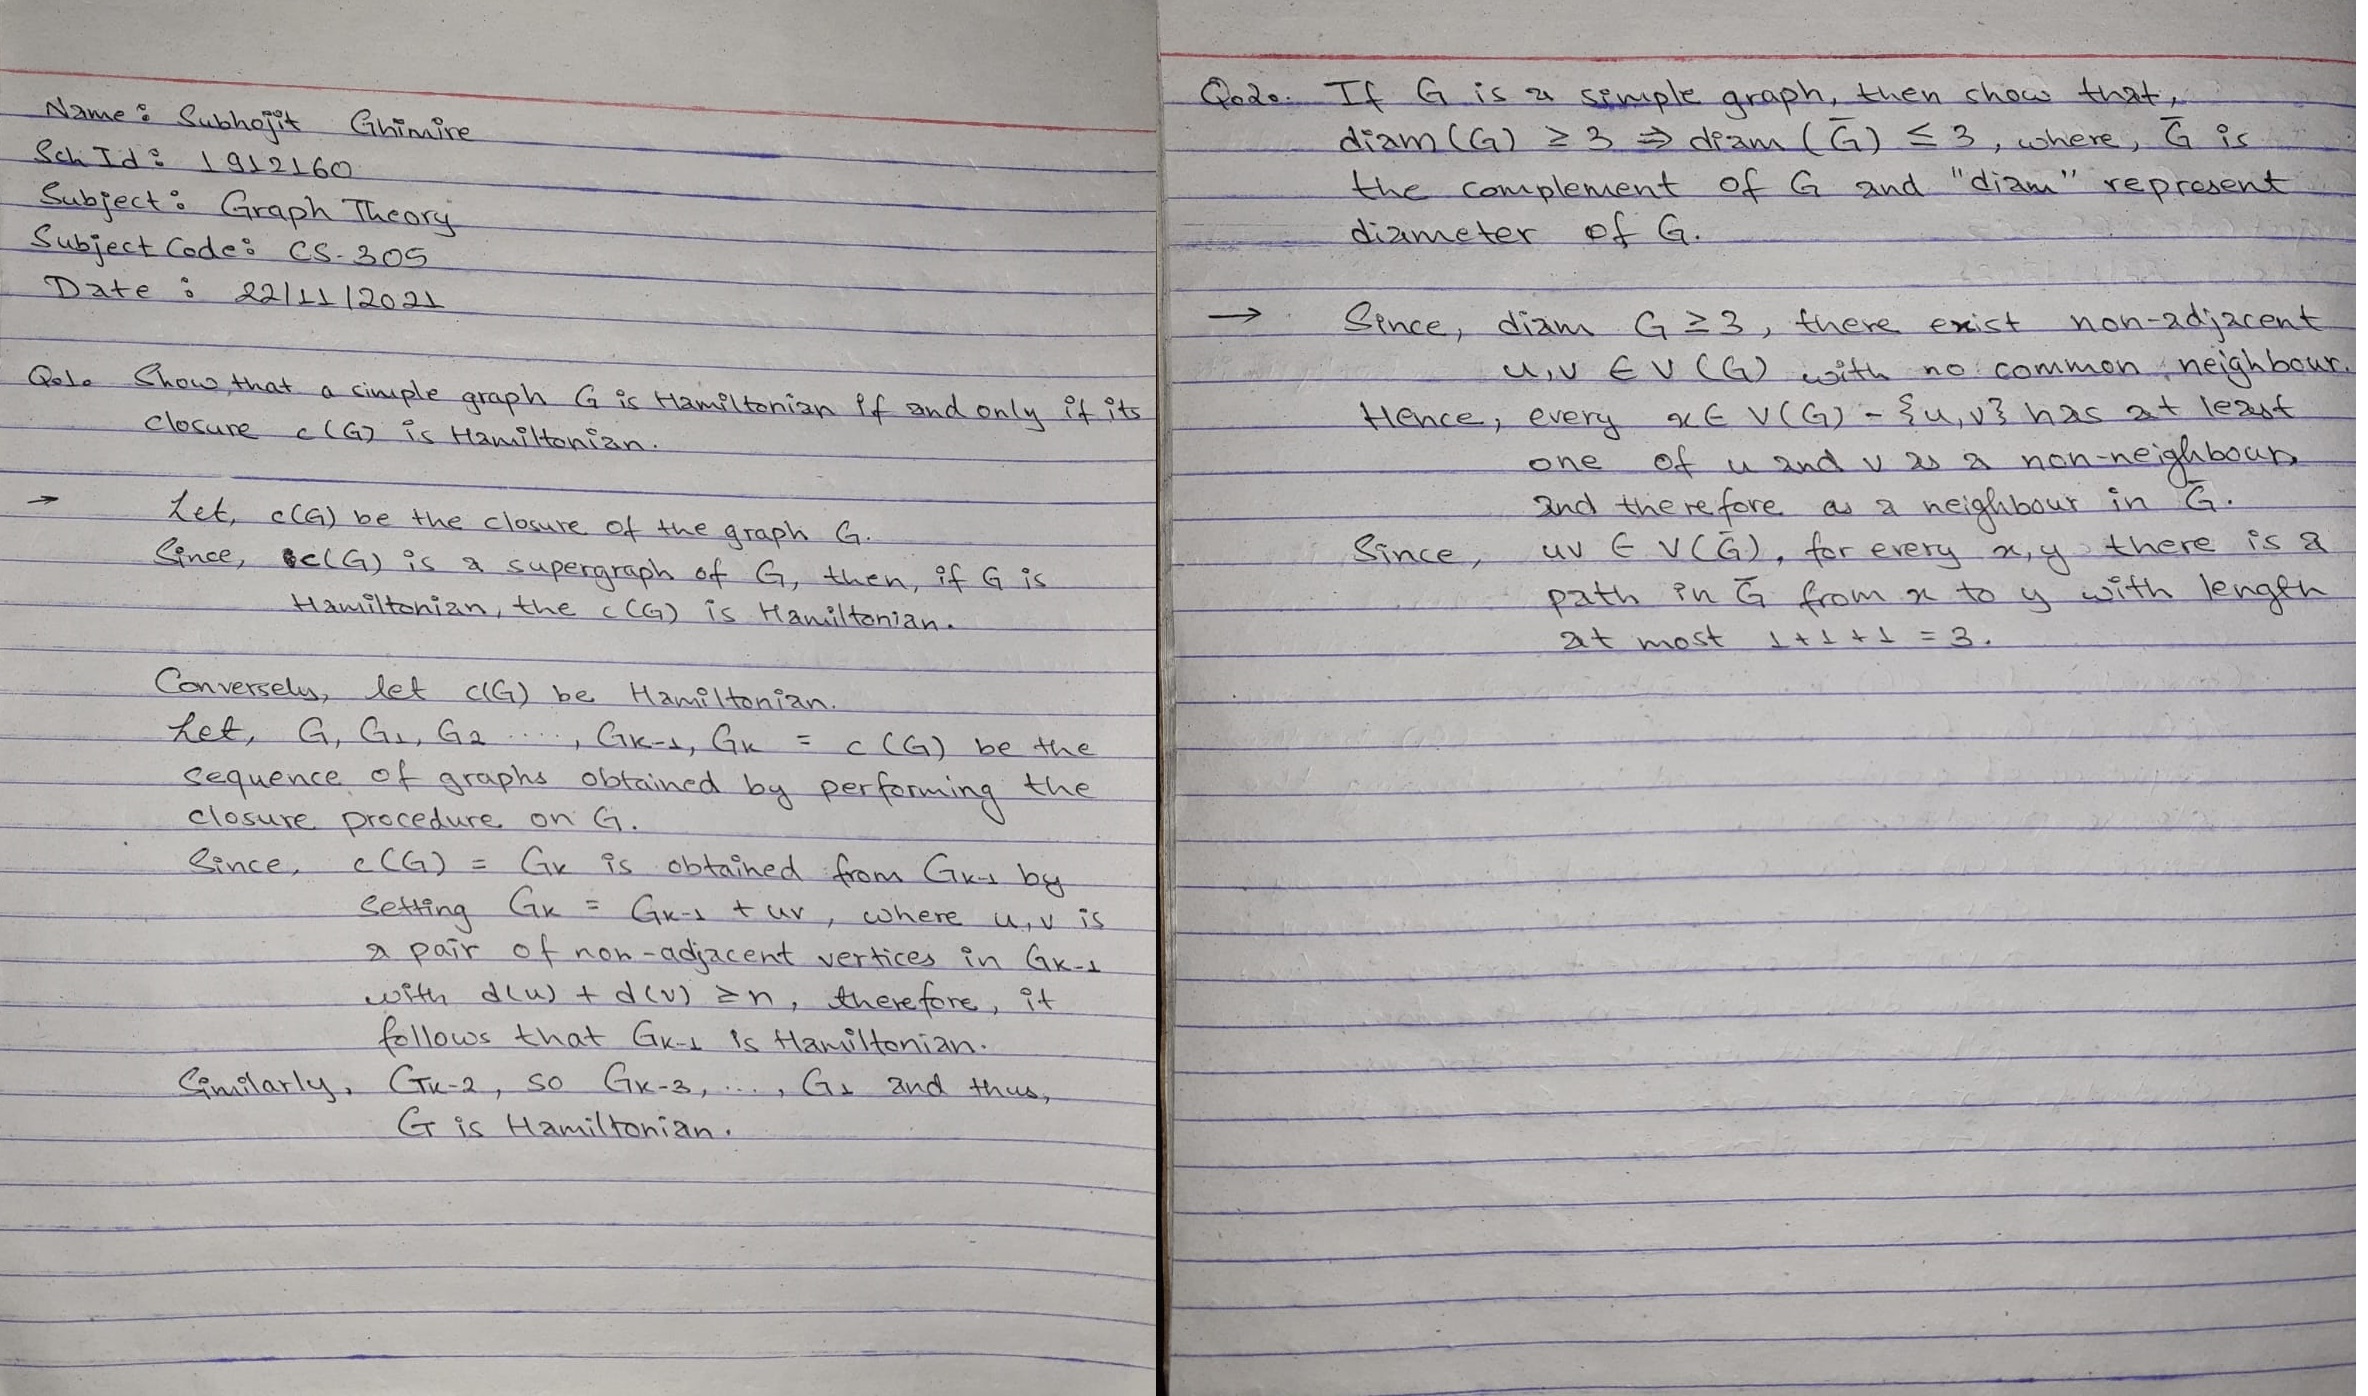 Name: Subhojit Ghimire
Sch Id: 1912160
Subject: Graph Theory
Subject Code: CS-305
Date: 22/11/2021
Q.1. Show that a simple graph G is Hamiltonian if and only if its
closure c(G) is Hamiltonian.
→ Let, c(G) be the closure of the graph G.
Since, c(G) is a supergraph of G, then, if G is
Hamiltonian, the c(G) is Hamiltonian.
Conversely, let c(G) be Hamiltonian.
Let, G, G₁, G₂ ...., Gₖ₋₁, Gₖ = c(G) be the
sequence of graphs obtained by performing the
closure procedure on G.
Since, c(G) = Gₖ is obtained from Gₖ₋₁ by
setting Gₖ = Gₖ₋₁ + uv, where u,v is
a pair of non-adjacent vertices in Gₖ₋₁
with d(u) + d(v) ≥ n, therefore, it
follows that Gₖ₋₁ is Hamiltonian.
Similarly, Gₖ₋₂, so Gₖ₋₃, ..., G₁ and thus,
G is Hamiltonian.
Q.2. If G is a simple graph, then show that,
diam(G) ≥ 3 ⇒ diam(G̅) ≤ 3, where, G̅ is
the complement of G and "diam" represent
diameter of G.
→ Since, diam G ≥ 3, there exist non-adjacent
u,v ∈ V(G) with no common neighbour.
Hence, every x ∈ V(G) - {u,v} has at least
one of u and v as a non-neighbour
and therefore as a neighbour in G̅.
Since, uv ∈ V(G̅), for every x,y there is a
path in G̅ from x to y with length
at most 1+1+1 = 3.